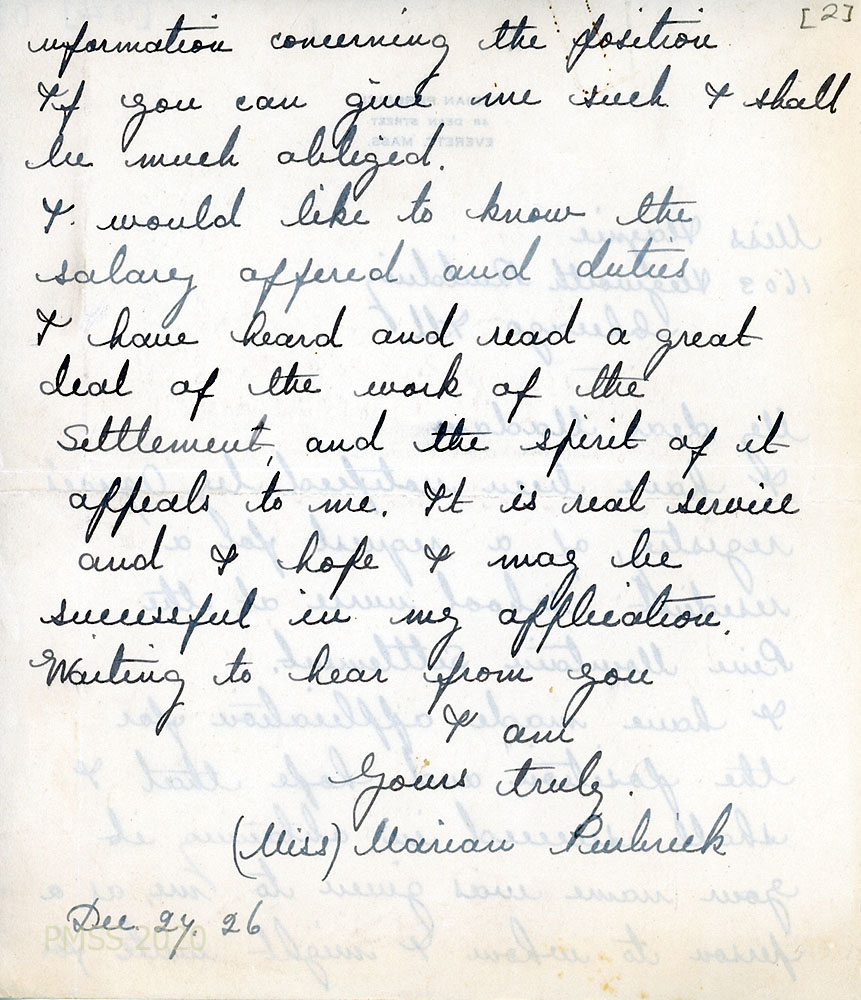 [2]
information concerning the position
If you can give me such I shall
be much obliged.
I would like to know the
salary offered and duties
I have heard and read a great
deal of the work of the
Settlement, and the spirit of it
appeals to me. It is real service
and I hope I may be
successful in my application.
Waiting to hear from you
I am
Yours truly.
(Miss) Marian
Dec. 27. 26
PMSS 2020